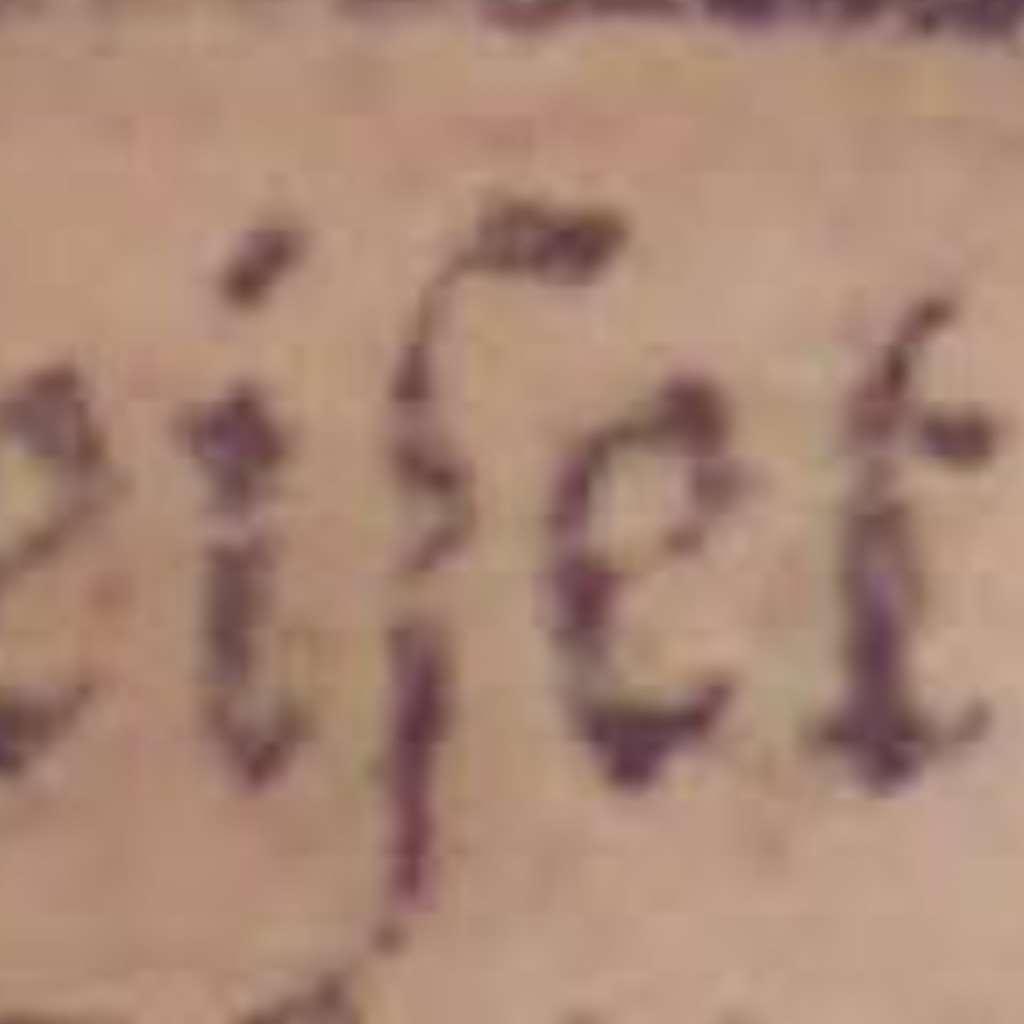 eiſet